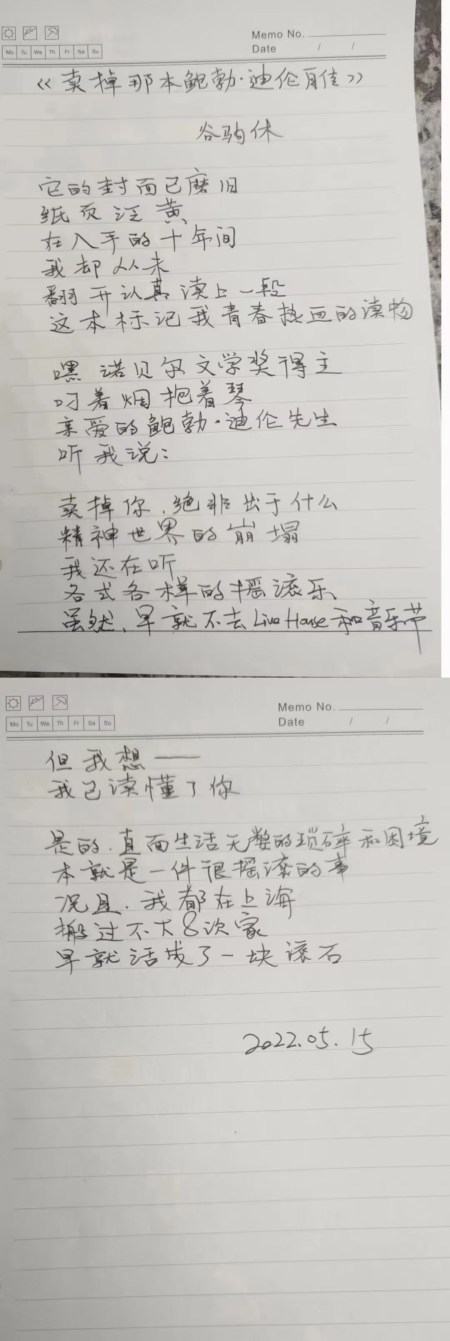 Memo No.
Mo Tu We Th Fr Sa Su
Date / /
《卖掉那本鲍勃·迪伦自传》
谷驹休
它的封面已磨旧
纸页泛黄
在入手的十年间
我却从未
翻开认真读上一段
这本标记我青春热血的读物
嘿 诺贝尔文学奖得主
叼着烟抱着琴
亲爱的鲍勃·迪伦先生
听我说:
卖掉你,绝非出于什么
精神世界的崩塌
我还在听
各式各样的摇滚乐
虽然,早就不去Live House和音乐节
Memo No.
Mo Tu We Th Fr Sa Su
Date / /
但我想——
我已读懂了你
是的,直面生活无尽的琐碎和困境
本就是一件很摇滚的事
况且,我都在上海
搬过不大8次家
早就活成了一块滚石
2022.05.15